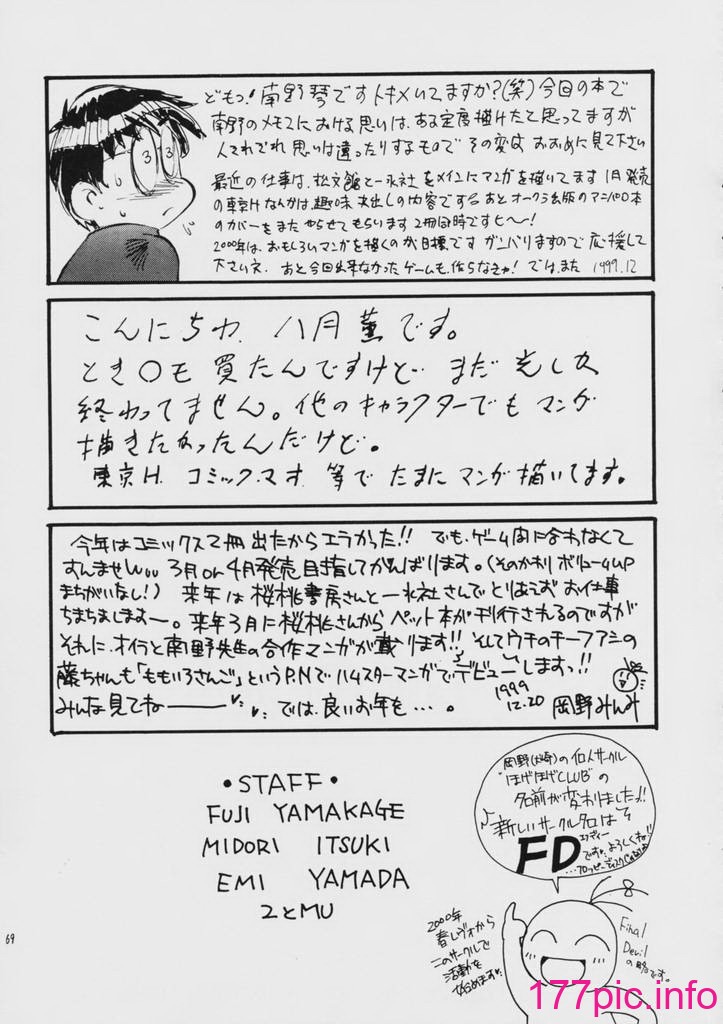 どもっ!南野琴です トキメいてますか?(笑)今回の本で
南野のメモ2における思いは、ある程度描けたと思ってますが
人それぞれ思いは違ったりするもので その変は おおめに見て下さい
最近の仕事は、松文館と一水社をメインにマンガを描いてます 1月発売
の東京Hなんかは、趣味丸出しの内容でする あと オークラ出版のアニパロ本
のカバーをまた やらせてもらいます 2冊同時ですヒ〜!
2000年は、おもしろいマンガを描くのが目標です ガンバりますので応援して
下さいネ. あと今回出来なかったゲームも、作らなきゃ! では、また 1999.12
こんにちわ 八月薫です。
とき〇モ 買たんですけど まだ 光しか
終わってません。他のキャラクターでも マンガ
描きたかったんだけど。
東京H. コミック・マオ 等で たまに マンガ描いてます。
今年はコミックス2冊出たからエラかった!! でも、ゲーム間に合わなくて
すんませんw 3月or4月発売目指してがんばります。(そのかわり ボリュームup
まちがいなし!) 来年は桜桃書房さんと一水社さんでとりあえず お仕事
ちまちましま〜。来年3月に桜桃さんから ペット本が刊行されるのですが
それに、オイラと南野先生の合作マンガが載ります!! そしてウチのチーフアシの
藤ちゃんも「ももいろさんご」というP.Nでハムスターマンガでデビューしますっ!!
みんな見てね――― では、良いお年を…。
1999
12.20 岡野みんみ
岡野()の個人サークル
"ほげほげCLUB"の
名前が変わりました!!
♪新しいサークル名は
FD
エフディー
です よろしくね!!
…フロッピーディスク
・STAFF・
FUJI YAMAKAGE
MIDORI ITSUKI
EMI YAMADA
2とMU
2000年
春レヴォから
このサークルで
活動を
始めます
Final
Devil
の略です。
69
177pic.info